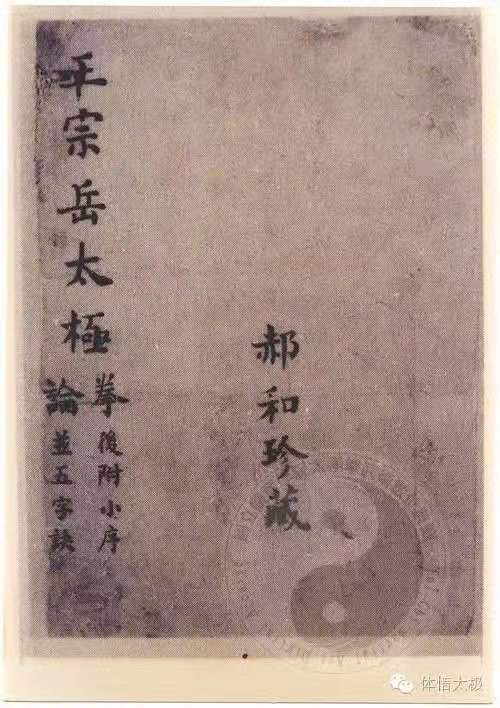 郝和珍藏
王宗岳太極
拳後附小序
論並五字訣
体悟太极